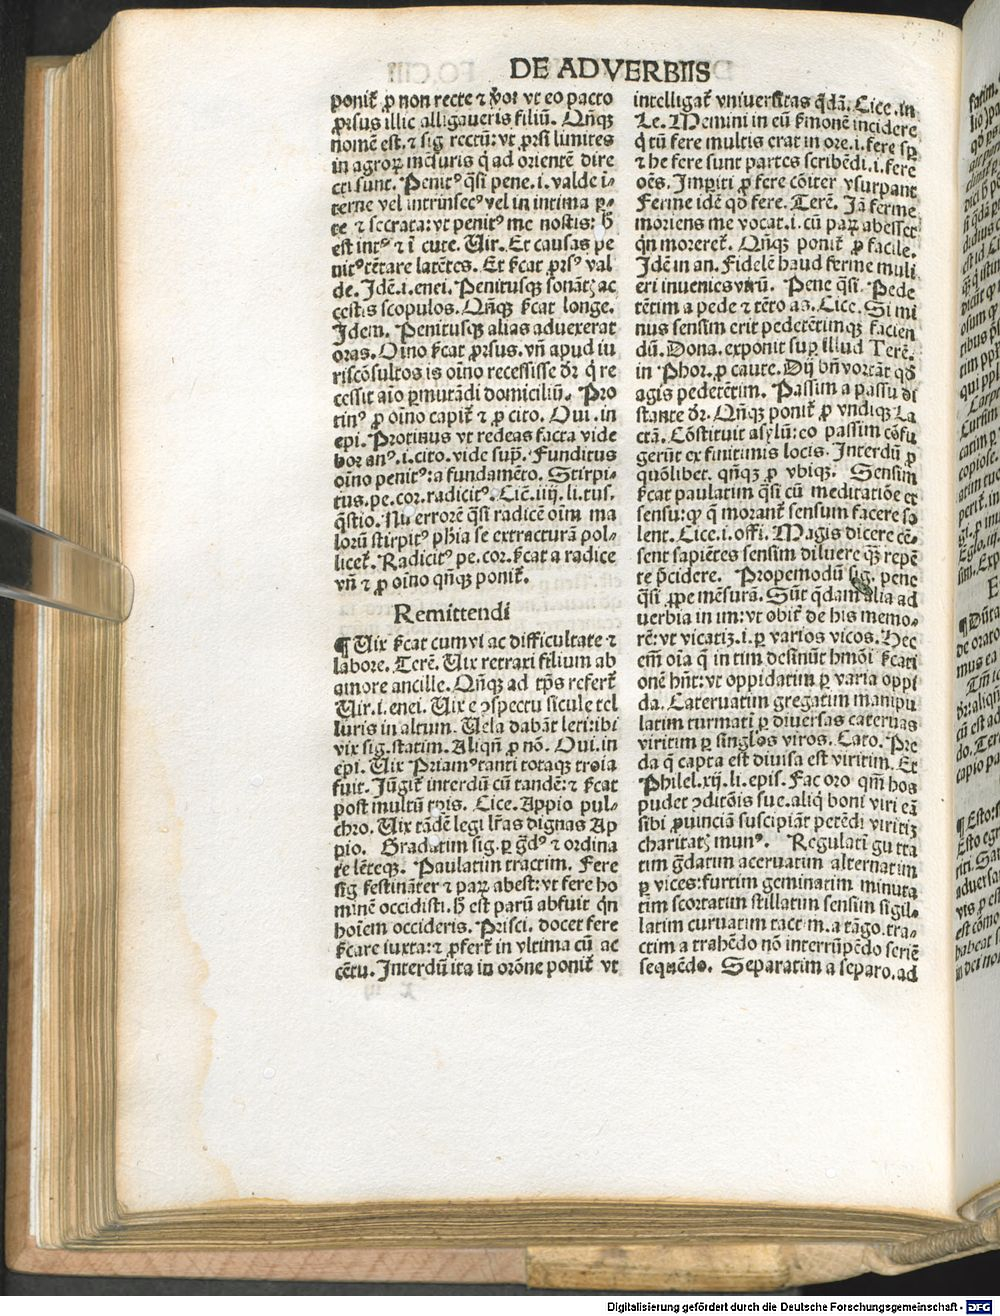 DE ADVERBIIS
ponit̃ ꝓ non recte ⁊ vt eo pacto
ꝓrsus illic alligaueris filiū. Qñqꝫ
nomē est. ⁊ sig. rectū: vt prsi limites
in agrorꝫ mēsuris q̄ ad orientē dire
cti sunt. Penitꝰ q̃si pene. i. valde i-
terne vel intrinsecꝰ vel in intima ꝑ-
te ⁊ secrata: vt penitꝰ me nostis: hͦ
est intꝰ ⁊ ī cute. Uir. Et causas pe
nitꝰ tētare latētes. Et ſ̃cat ꝓrsꝰ val
de. Idē. i. enei. Penitusqꝫ sonātꝫ ac
cestis scopulos. Qñqꝫ ſ̃cat longe.
Idem. Penitusqꝫ alias aduexerat
oras. Oīno ſ̃cat ꝓrsus. vñ apud iu
riscōsultos is oīno recessisse dr̃ q̇ re
cessit aīo ꝑmutādi domiciliū. Pro
tinꝰ ꝓ oīno capit̃ ⁊ ꝓ cito. Oui. in
epi. Protinus vt redeas facta vide
bor anꝰ. i. cito. vide supͣ. Funditus
oīno penitꝰ: a fundamēto. Stirpi-
tus. pe. cor. radicitꝰ. Ciē. iiij. li. tus.
q̄stio. Nū errorē q̃si radicē oīm ma
lorū stirpitꝰ phīa se extracturā pol-
licet̃. Radicitꝰ pe. cor. ſ̃cat a radice
vñ ⁊ ꝓ oīno qñqꝫ ponit̃.
Remittendi
¶ Uix ſ̃cat cum vi ac difficultate ⁊
labore. Terē. Uix retraxi filium ab
amore ancille. Qñqꝫ ad tꝑs refert̃
Uir. i. enei. Uix e ꝯspectu sicule tel
luris in altum. Uela dabāt leti: ibi
vix sig. statim. Aliqñ ꝓ nō. Oui. in
epi. Uix Priamꝰ tanti totaqꝫ troia
fuit. Jūgit̃ interdū cū tandē: ⁊ ſ̃cat
post multū tꝑis. Cice. Appio pul-
chro. Uix tādē legi lr̃as dignas Ap
pio. Gradatim sig. ꝑ gͣdꝰ ⁊ ordina
te lēteqꝫ. Paulatim tractim. Fere
sig. festināter ⁊ parꝫ abest: vt fere ho
minē occidisti. hͦ est parū abfuit qͥn
hoīem occideris. Prisci. docet fere
ſ̃care iuxta: ⁊ ꝓfert̃ in vltima cū ac
cētu. Interdū ita in orōne ponit̃ vt
intelligat̃ vniuersitas q̄dā. Cice. in
Le. Memini in eū ſ̃monē incidere
q̇ tū fere multis erat in ore. i. fere sp̃
⁊ he fere sunt partes scribēdi. i. fere
oēs. Impiti ꝓ fere cōiter vsurpant
Ferme idē qd̃ fere. Terē. Jā ferme
moriens me vocat. i. cū parꝫ abesset
qͥn moreret̃. Qñqꝫ ponit̃ ꝓ facile.
Idē in an. Fidelē haud ferme muli
eri inuenies virū. Pene q̃si. Pede
tētim a pede ⁊ tēto as. Cice. Si mi
nus sensim erit pedetētimqꝫ facien
dū. Dona. exponit supͣ illud Terē.
in Phor. ꝓ caute. Dij bñ vortāt qd̃
agis pedetētim. Passim a passu di
stante dr̃. Qñqꝫ ponit̃ ꝓ vndiqꝫ La
ctā. Cōstituit asylū: eo passim cōfu
gerūt ex finitimis locis. Interdū ꝓ
quōlibet. qñqꝫ ꝓ vbiqꝫ. Sensim
ſ̃cat paulatim q̃si cū meditatiōe et
sensu: qꝛ q̄ morant̃ sensum facere so
lent. Cice. i. offi. Magis dicere cē-
sent sapiētes sensim diluere qͣꝫ repē
te p̄cidere. Propemodū sig. pene
q̃si ꝓpe mēsurā. Sūt q̄dam alia ad
uerbia in im: vt obit̃ de his memo-
rē: vt vicatiꝫ. i. ꝑ varios vicos. Hec
em̄ oīa q̄ in tim desinūt hmōi ſ̃cati
onē hn̄t: vt oppidatim ꝑ varia oppi
da. Cateruatim gregatim manipu
latim turmati ꝑ diuersas cateruas
viritim ꝑ singlos viros. Cato. Pre
da q̄ capta est diuisa est viritim. Et
Philel. xij. li. epis. Fac oro qm̄ hos
pudet ꝯditōis sue. aliq̇ boni viri eā
sibi ꝓuinciā suscipiāt petēdi viritiꝫ
charitatꝫ munꝰ. Regulati gutta
tim gͣdatim aceruatim alternatim
ꝑ vices: furtim geminatim minuta
tim scortatim stillatim sensim sigil-
latim curuatim tactim. a tāgo. tra-
ctim a trahēdo nō interrūpēdo seriē
sequēdo. Separatim a separo. ad
Digitalisierung gefördert durch die Deutsche Forschungsgemeinschaft - DFG